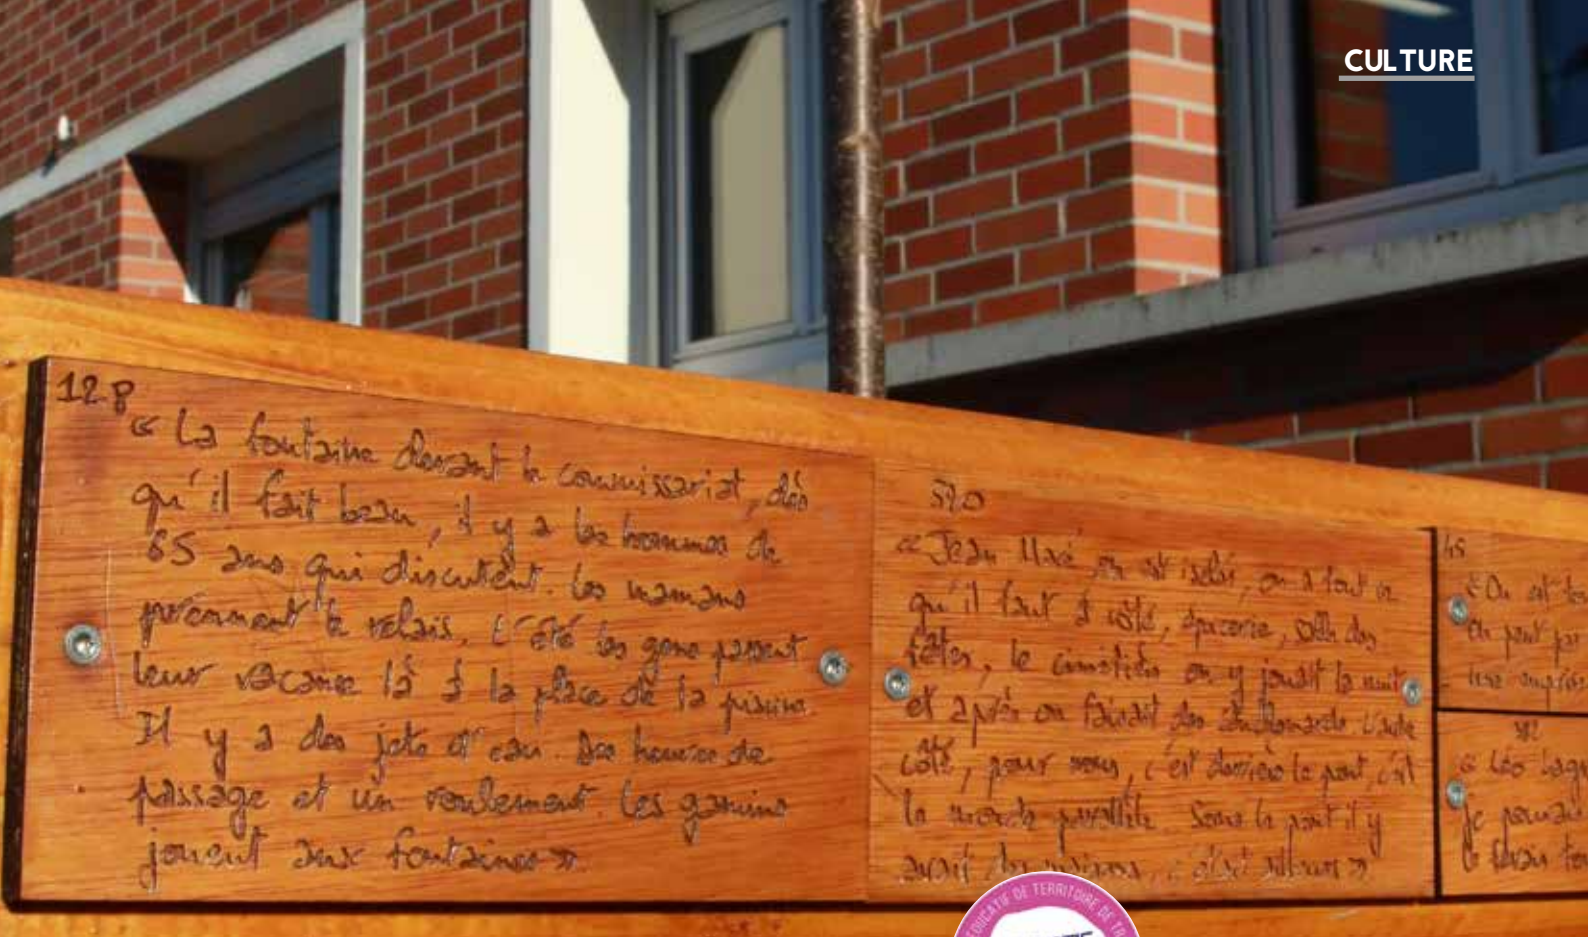 CULTURE
128
« La fontaine devant le commissariat, dès
qu'il fait beau, il y a les hommes de
65 ans qui discutent. Les mamans
prennent le relais. L'été les gens passent
leur vacance là à la place de la piscine
Il y a des jets d'eau. Des heures de
passage et un roulement. Les gamins
jouent aux fontaines »
570
« Jean Macé, on est isolés, on a tout ce
qu'il faut à côté, épicerie, salle des
fêtes, le cimetière on y jouait la nuit
et après on faisait des L'autre
côté, pour nous, c'est derrière le pont, c'est
le monde parallèle. Sous le pont il y
avait des maisons, c'était ailleurs »
45
« On est
On peut par
une
« Léo Lagr
je pouvais
le
ÉDUCATIF DE TERRITOIRE DE